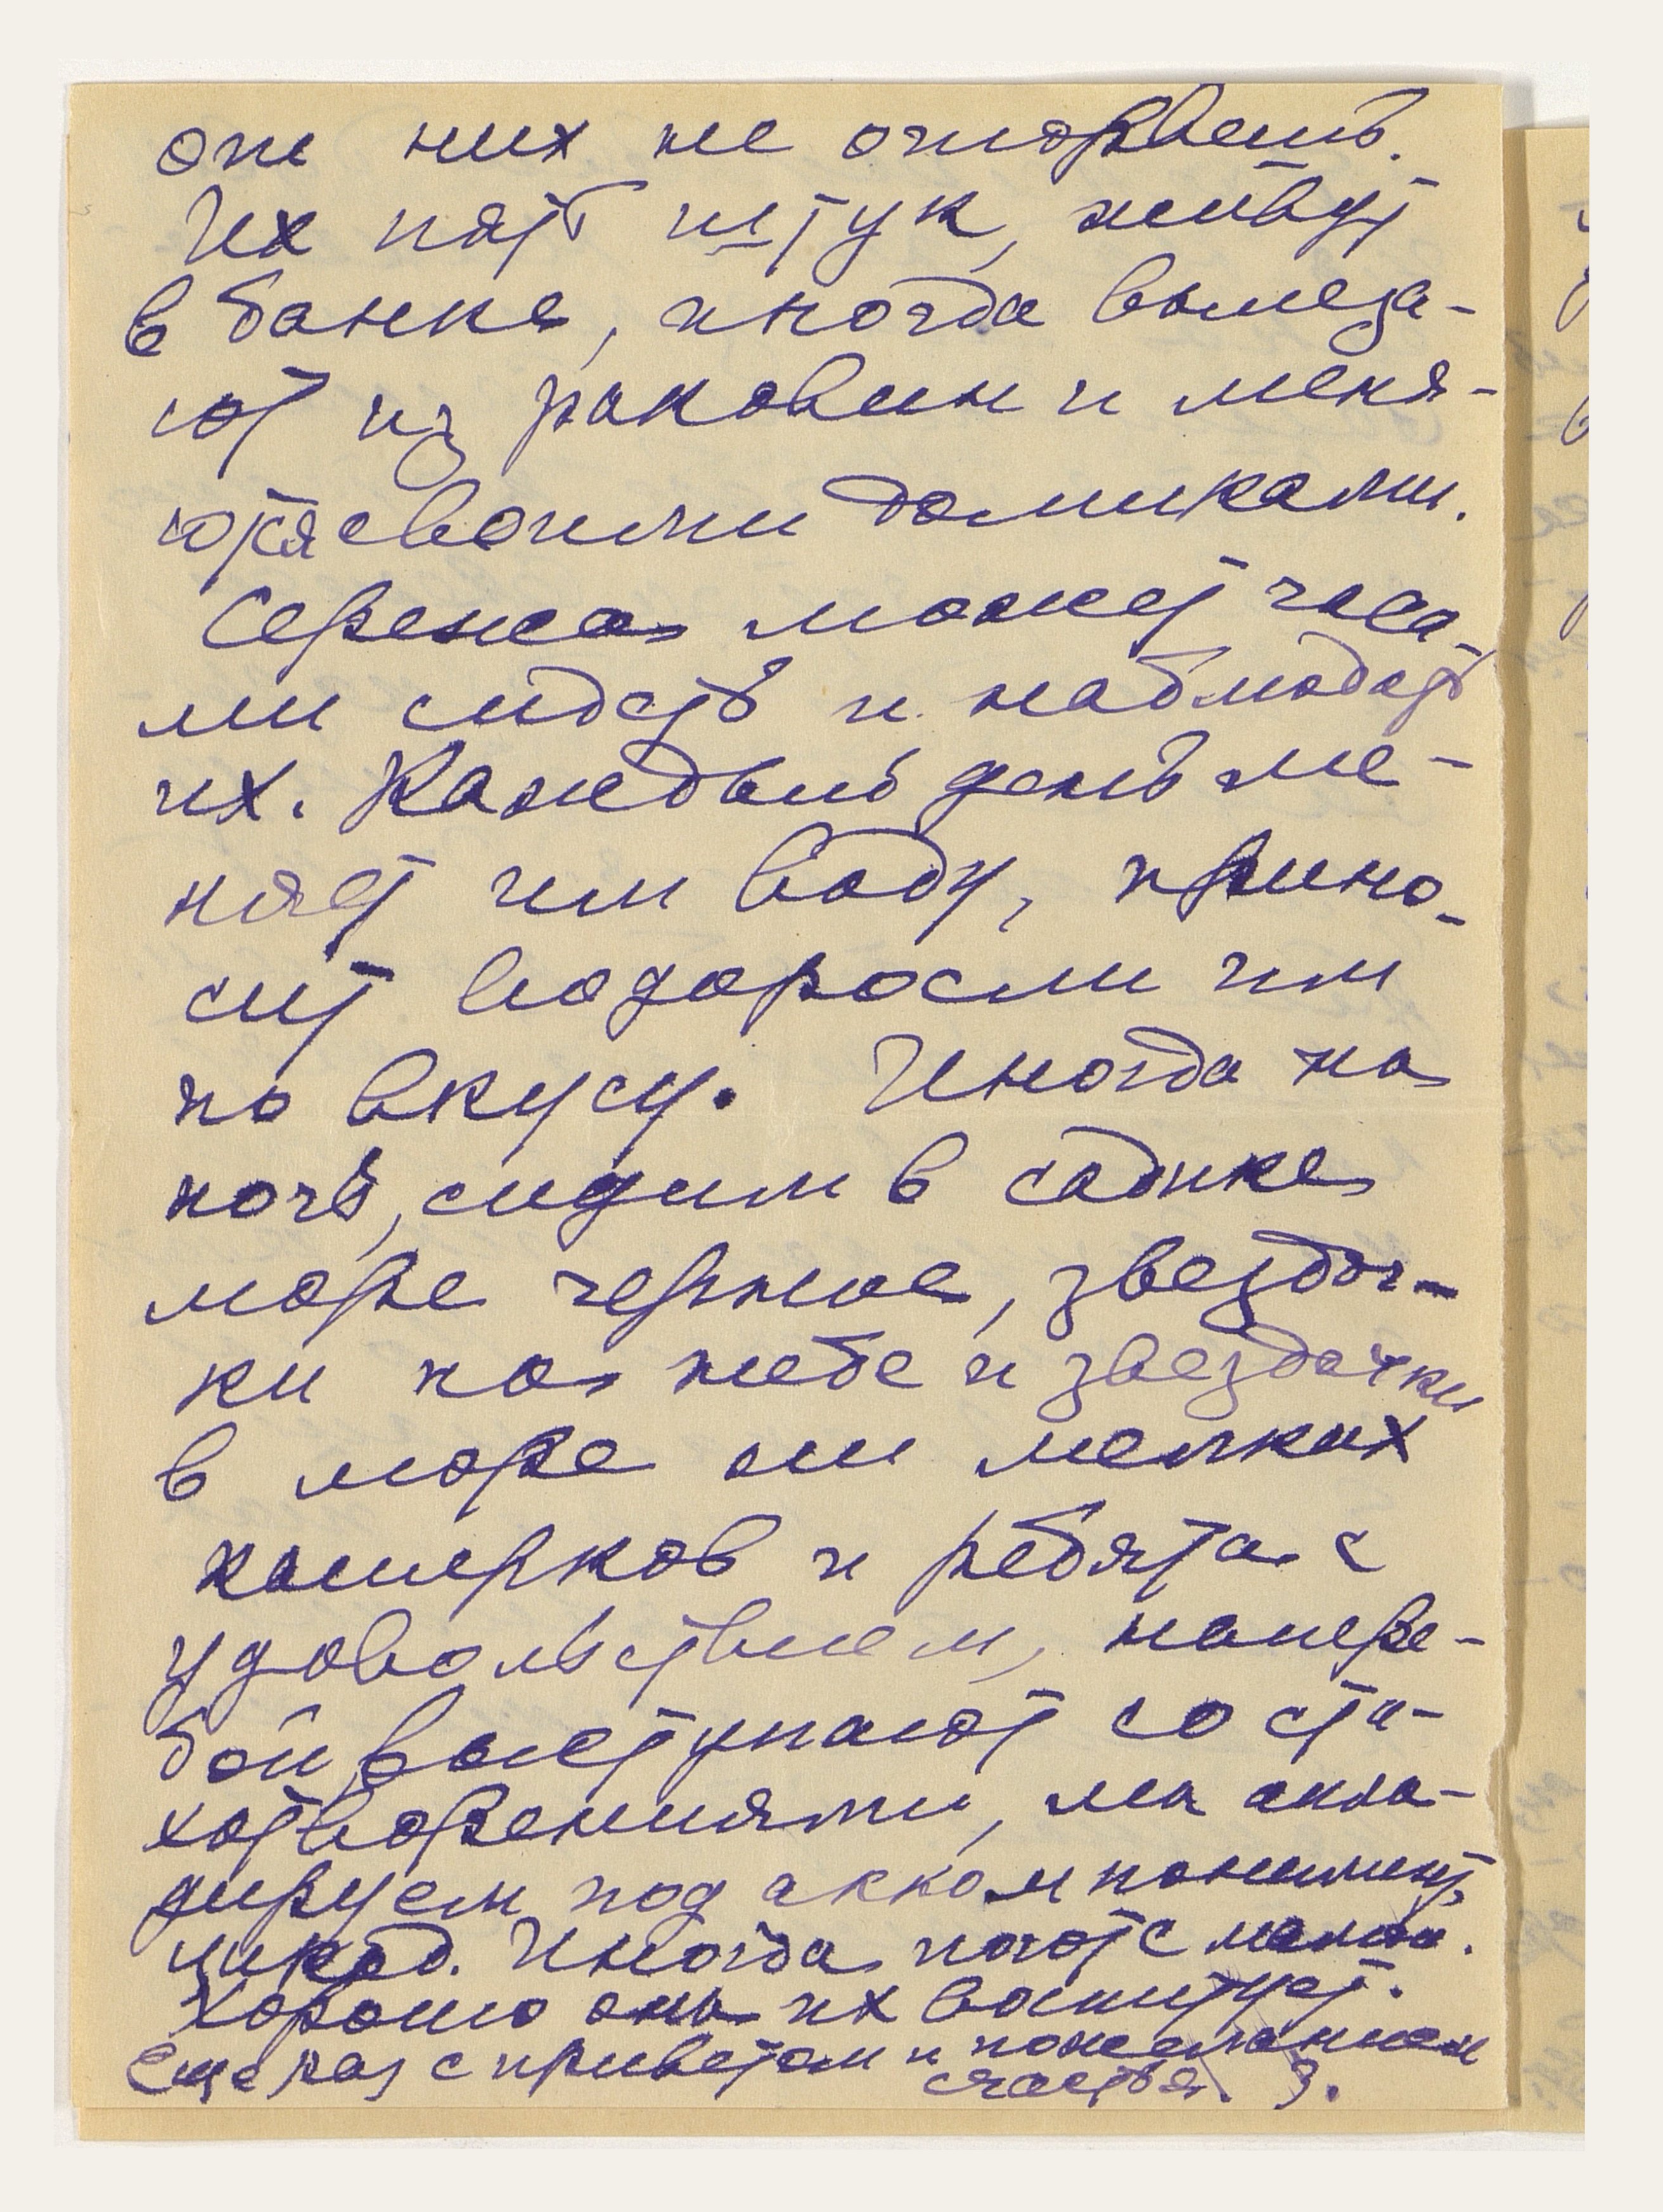 от них не оторвешь.
Их пять штук, живут
в банке, иногда вылеза-
ют из раковин и меня-
ются своими домиками.
Сережа может часа-
ми сидеть и наблюдать
их. Каждый день ме-
няет им воду, прино-
сит водоросли им
по вкусу. Иногда на
ночь, сидим в садике
море черное, звездоч-
ки на небе и звездочки
в море от мелких
катерков и ребята с
удовольствием, напере-
бой выступают со сти-
хотворениями, мы апло-
дируем под аккомпонимент
цикад. Иногда поют с мамой.
Хорошо она их воспитует.
Еще раз с приветом и пожеланием
счастья. З.